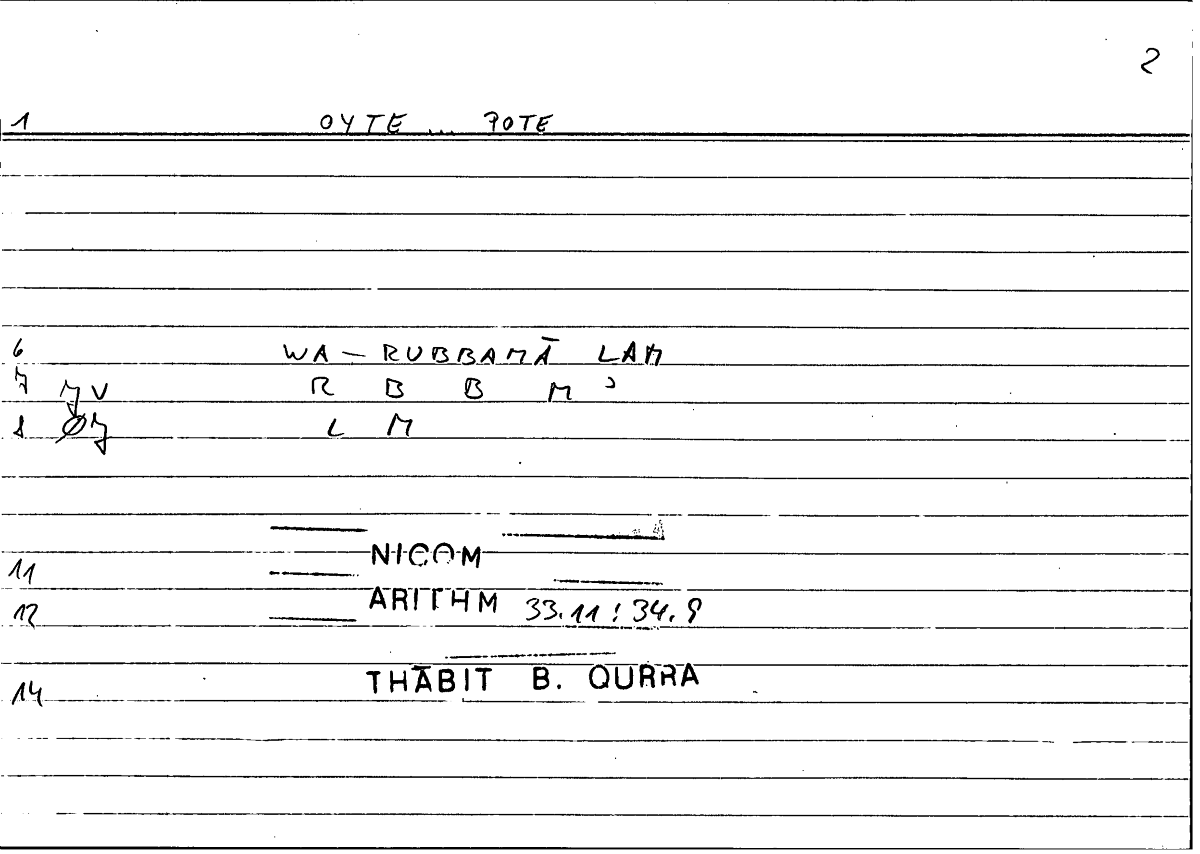 2
1 OYTE ... POTE
6 WA – RUBBAMĀ LAM
7 R B B M ʾ
8 L M
11 NICOM
12 ARITHM 33.11 : 34.9
14 THĀBIT B. QURRA